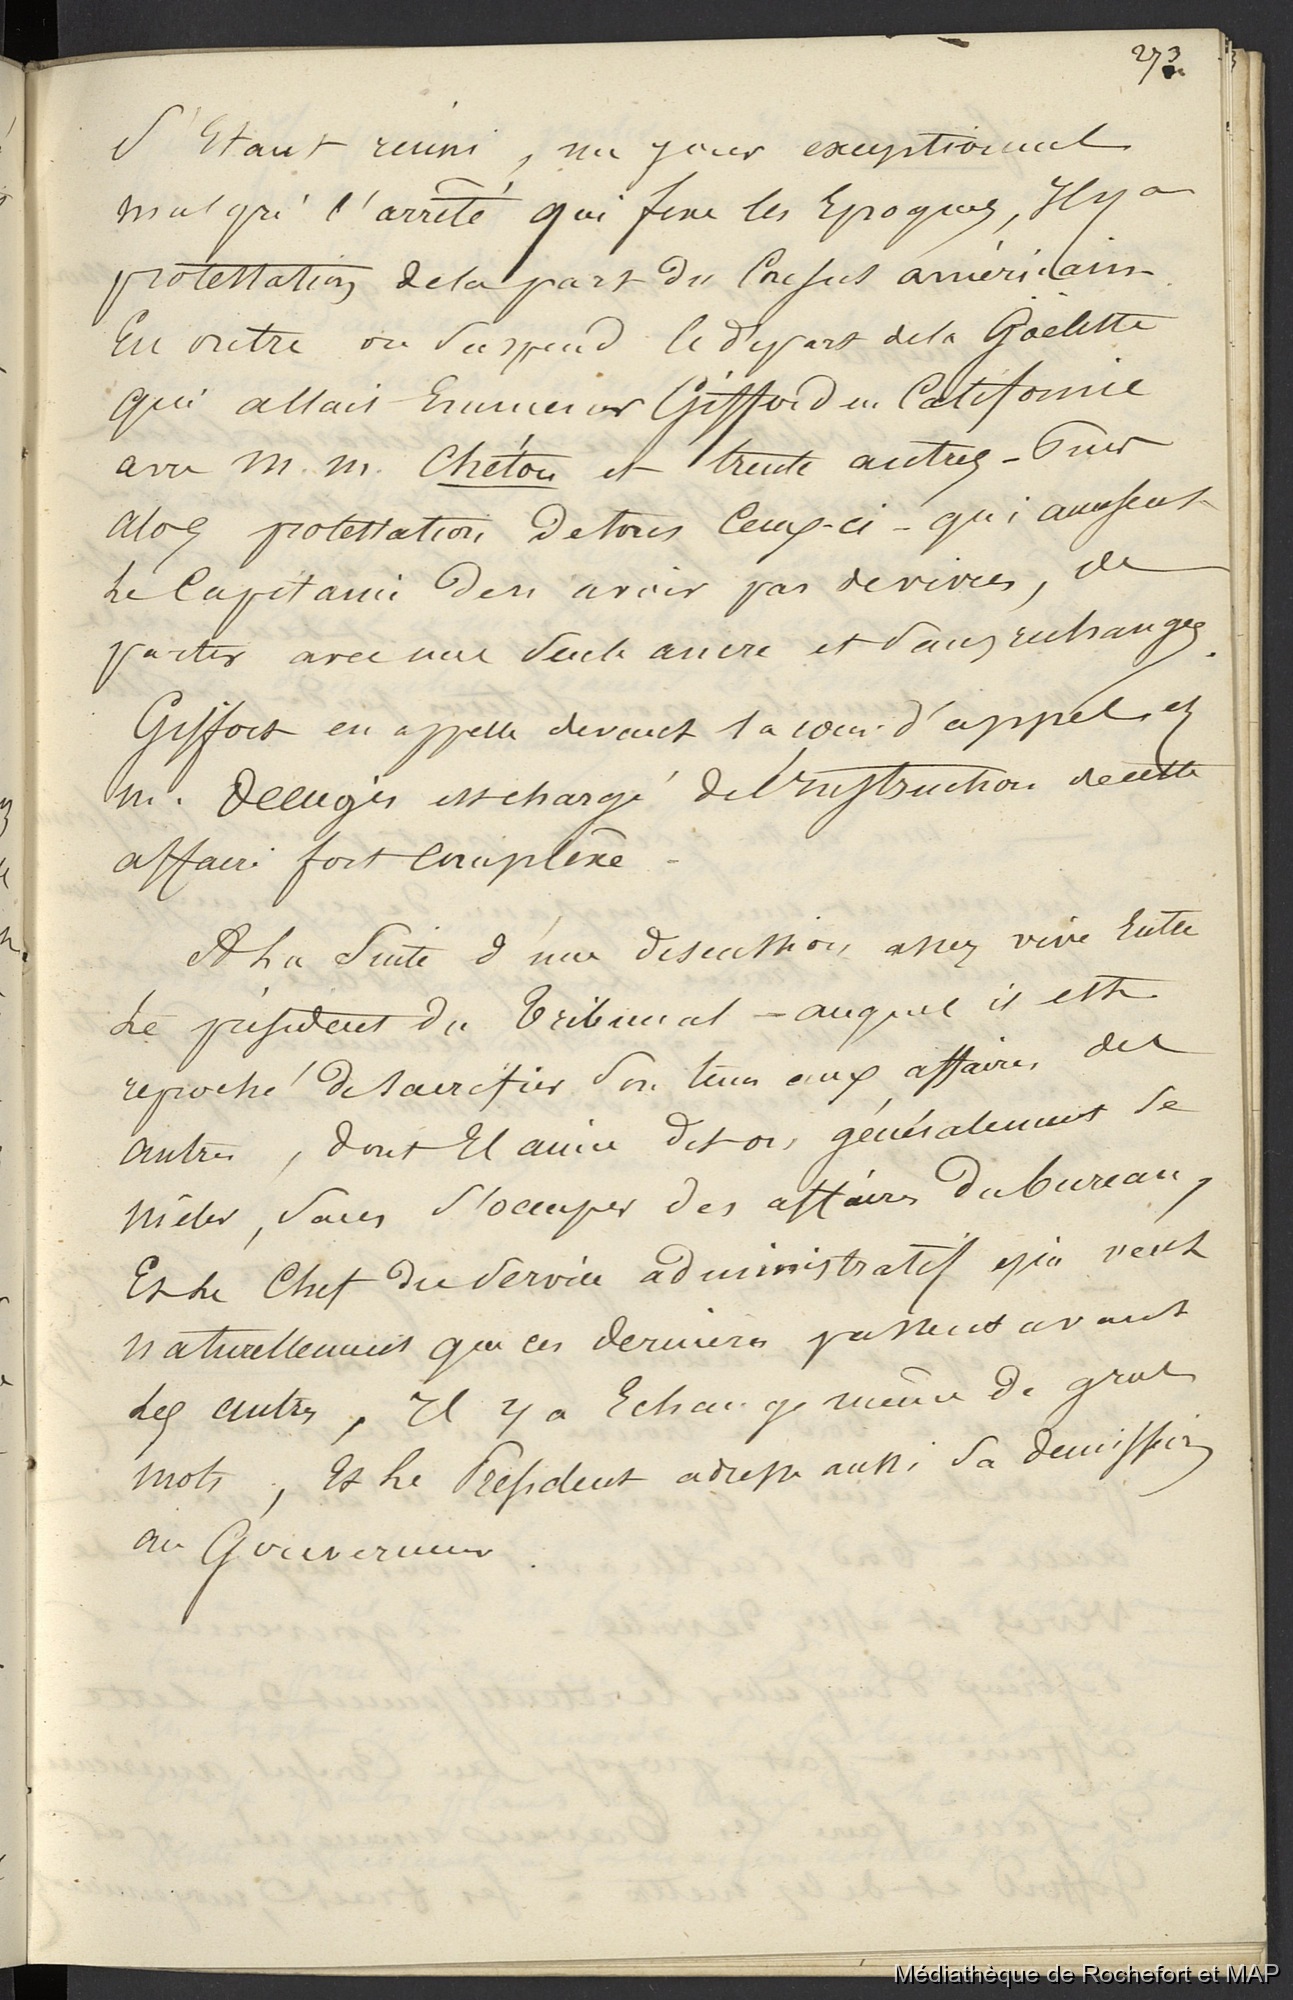 273
S'Etant reuni, un jour exceptionnel
malgré l'arrêté qui fixe les Epoques, Il y a
protestation de la part du Consul américain.
En outre on Suspend le départ de la Goëlette
qui allait Emmener Gifford en Californie
avec M. M. Chéton et trente autres - Puis
alors protestation de tous Ceux-ci - qui accusent
Le Capitaine de n'avoir pas de vivres, de
partir avec une Seule ancre et Sans rechanges.
Giffort en appelle devant la cour d'appel, et
M. Deeugis est chargé de l'instruction de cette
affaire fort Complexe -
A La Suite d'une discussion assez vive Entre
Le président du Tribunal - auquel il est
reproché de Sacrifier Son tems aux affaires des
autres, dont El aime dit-on, généralement Se
mêler, Sans S'occuper des affaires du bureau,
Et Le Chef du Service administratif qui veut
naturellement que ces dernières passent avant
Les autres, Il y a Echange même de gros
mots, Et Le Président adresse aussi Sa demission
au Gouverneur.
Médiathèque de Rochefort et MAP